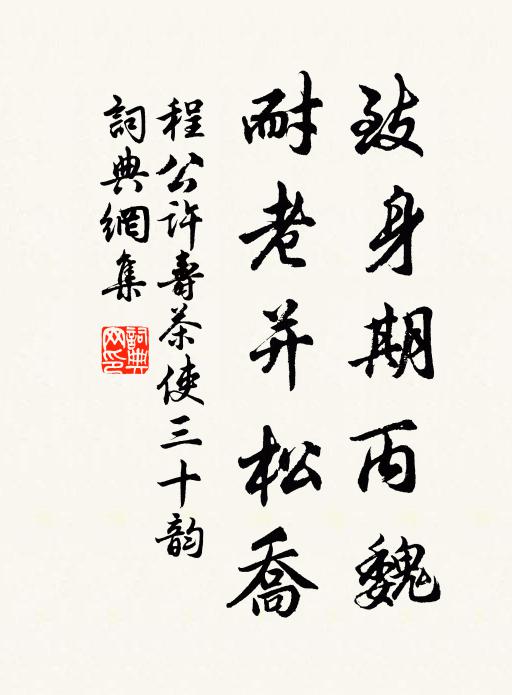 致身期丙魏
耐老并松喬
程公許壽茶使三十韵
詞典網集
詞典網印